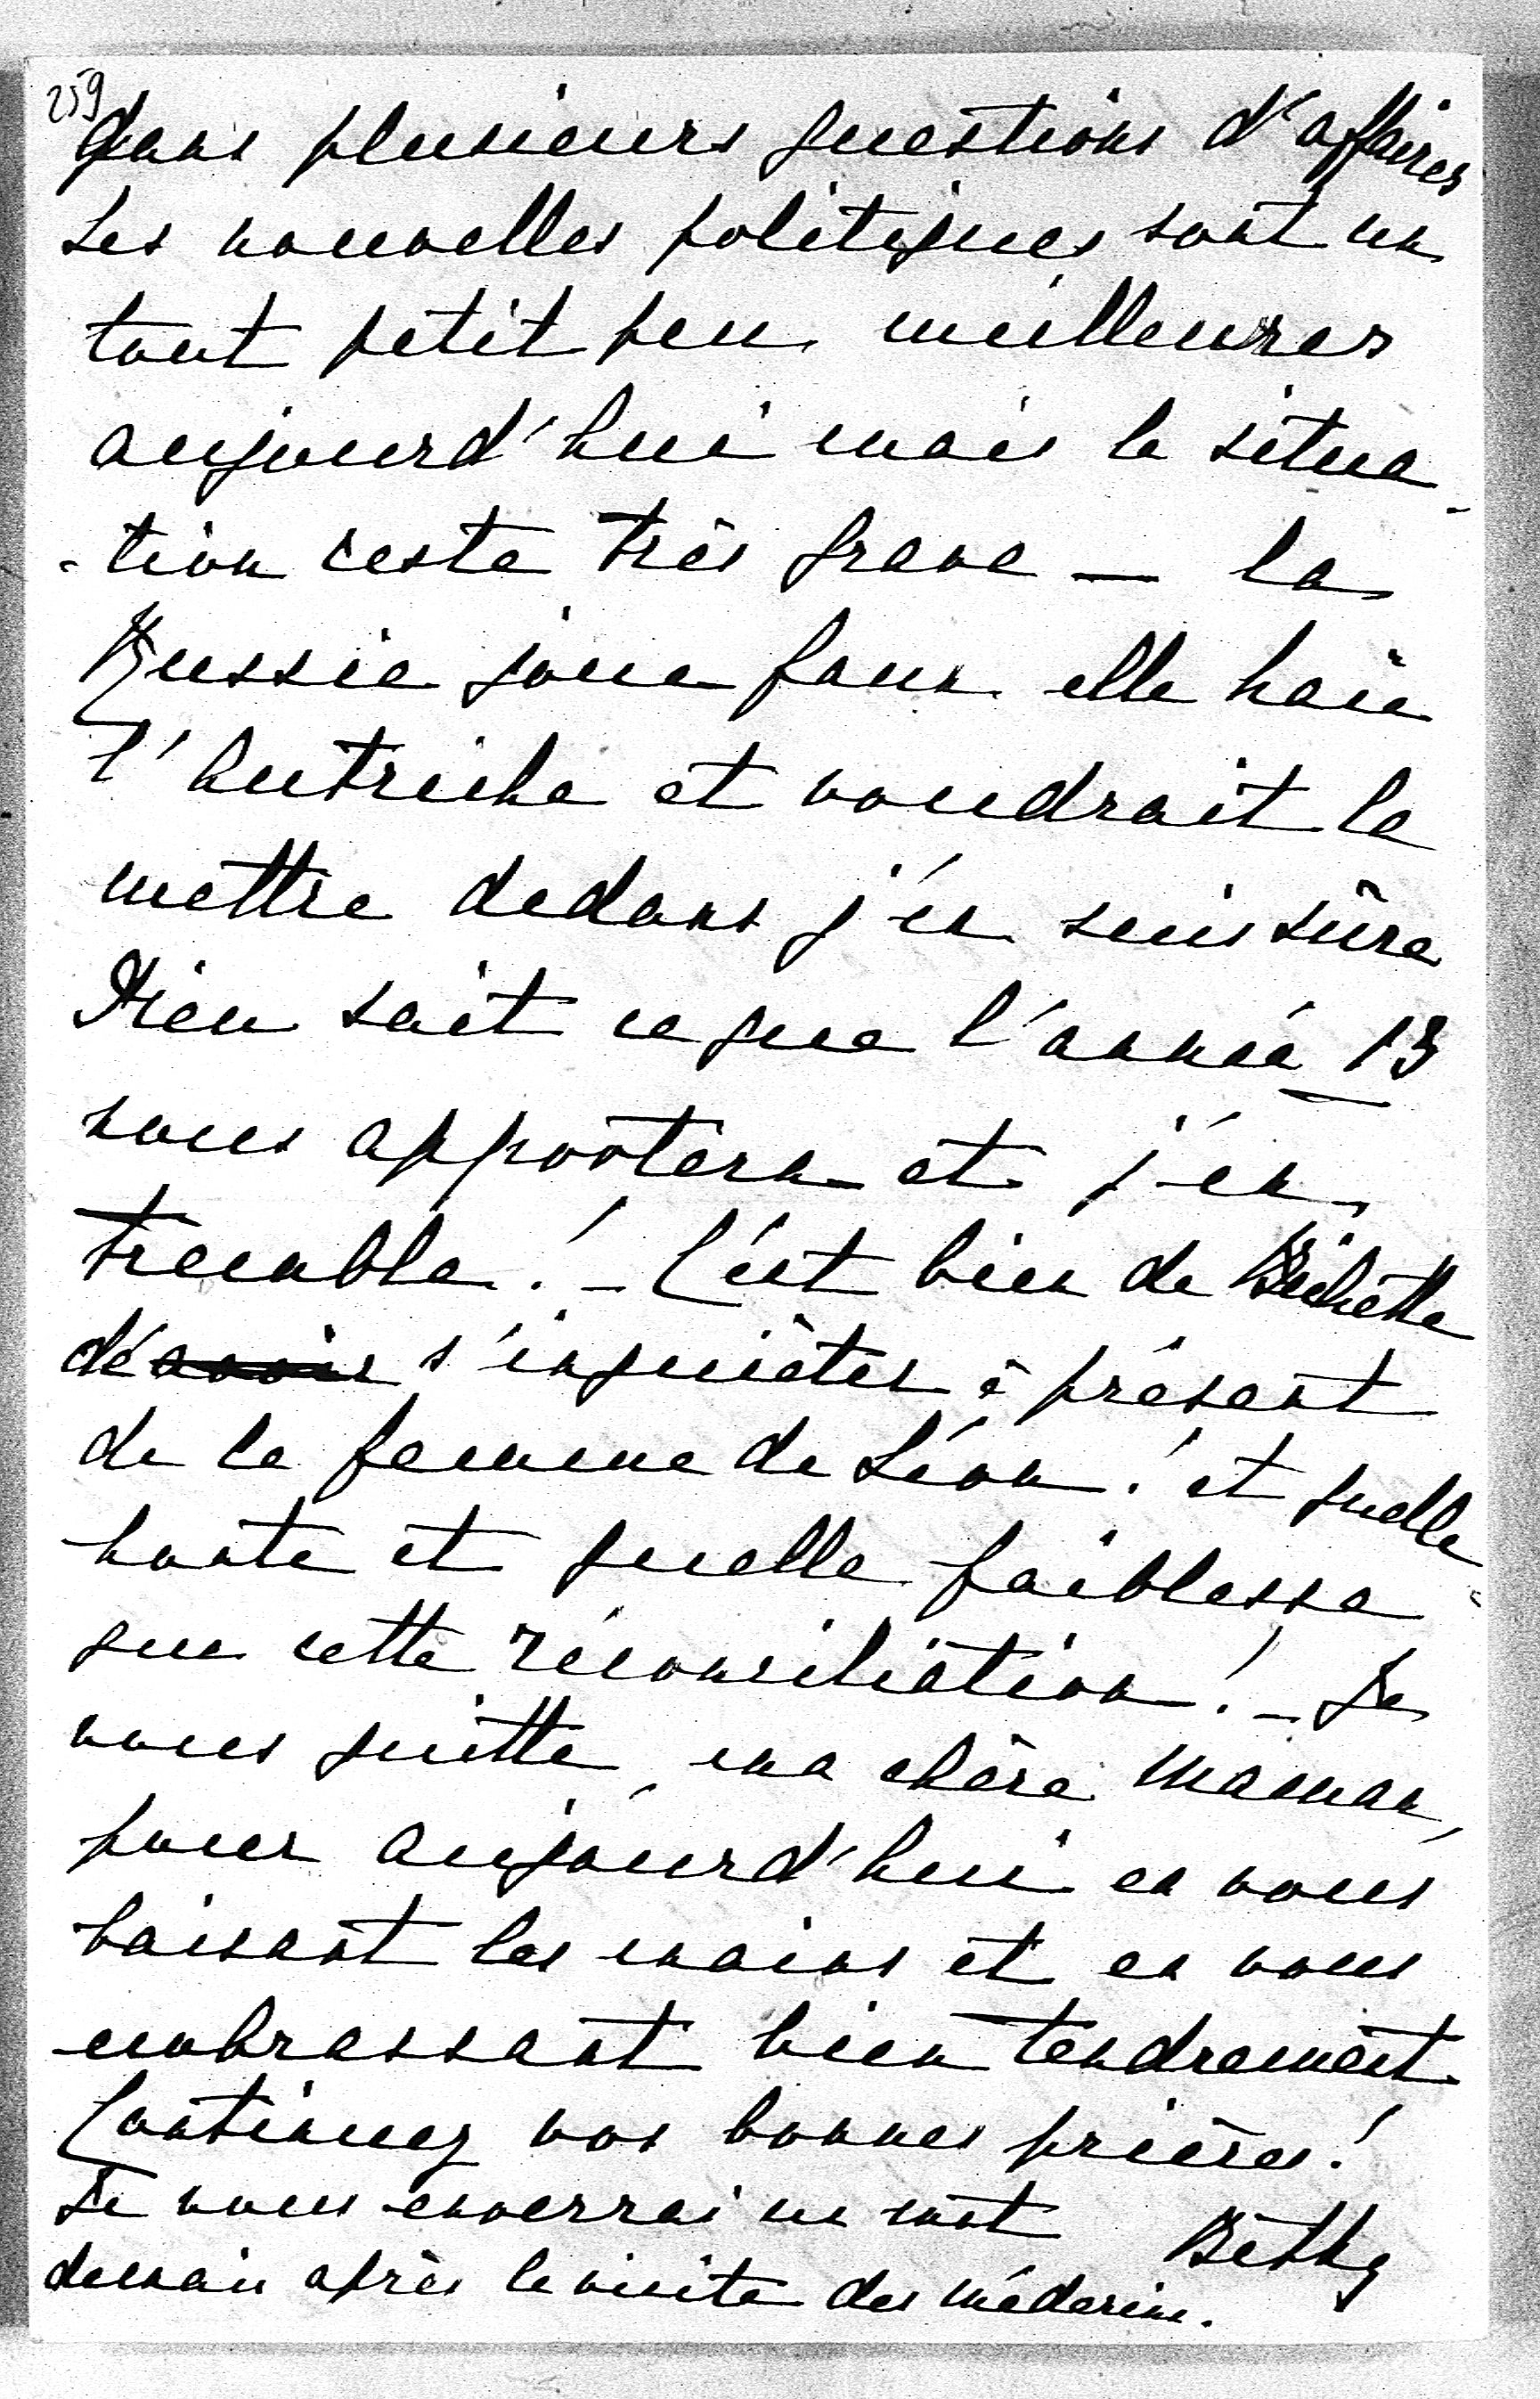 259
dans plusieurs questions d'affaires
Les nouvelles politiques sont un
tout petit peu meilleures
aujourd'hui mais la situa-
-tion reste très grave — la
Russie joue faux elle haïe
l'Autriche et voudrait la
mettre dedans j'en suis sûre
Dieu sait ce que l'année 13
nous apportera et j'en
tremble! - C'est bien de Bichette
de s'inquiéter à présent
de la femme de Léon! et quelle
honte et quelle faiblesse
que cette réconciliation! - Je
vous quitte, ma chère Maman,
pour aujourd'hui en vous
baisant les mains et en vous
embrassant bien tendrement.
Continuez vos bonnes prières!
Je vous enverrai un mot Bethy
demain après la visite des médecins.